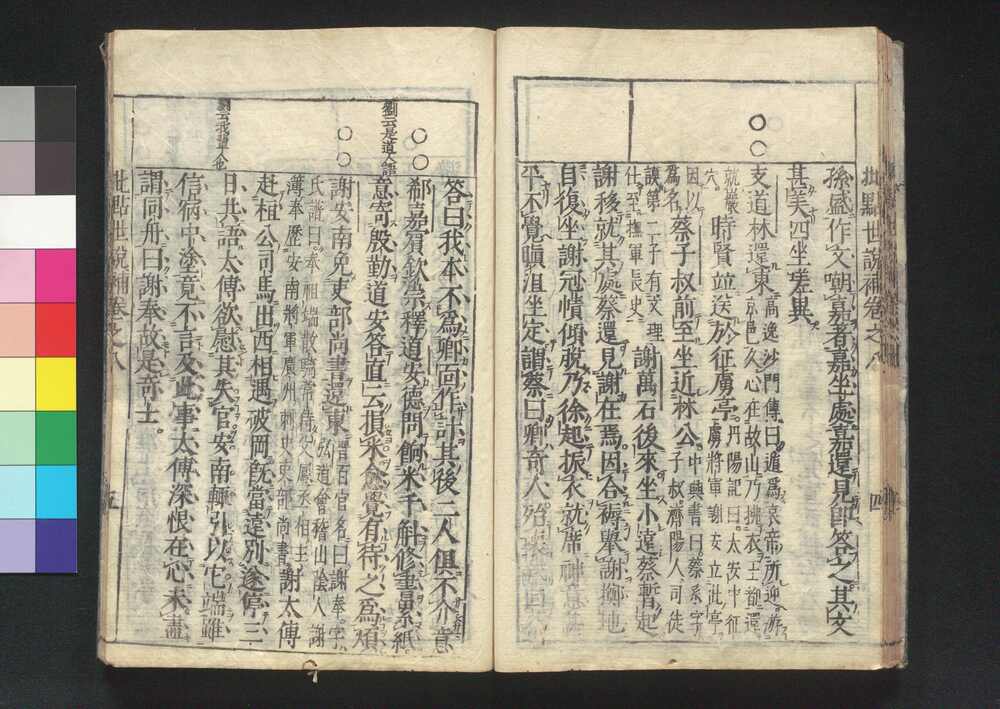 批點世說補卷之八
四
孫盛作文嘲嘉著嘉坐處嘉還見即答之其文
甚美四坐嗟異
支道林還東高逸沙門傳曰遁爲哀帝所迎游
京邑久心在故山乃拂衣王都還
就巖穴時賢並送於征虜亭丹陽記曰太安中征
虜將軍謝安立此亭
因以爲名蔡子叔前至坐近林公中興書曰蔡系字
子叔濟陽人司徒
謨第二子有文理
仕至撫軍長史謝萬石後來坐小遠蔡暫起
謝移就其處蔡還見謝在焉因合褥舉謝擲地
自復坐謝冠幘傾脫乃徐起振衣就席神意甚
平不覺瞋沮坐定謂蔡曰卿奇人殆壞我面
答曰我本不爲卿面作計其後二人俱不介意
劉云是道人語
郗嘉賓欽崇釋道安德問餉米千斛修書累紙
意寄殷勤道安答直云損米愈覺有待之爲煩
謝安南免吏部尚書還東晉百官名曰謝奉字
弘道會稽山陰人謝
氏譜曰奉祖端散騎常侍父鳳丞相主
簿奉歷安南將軍廣州刺史吏部尚書謝太傅
赴桓公司馬出西相遇破岡既當遠別遂停三
日共語太傅欲慰其失官安南輒引以它端雖
信宿中塗竟不言及此事太傅深恨在心未盡
謂同舟曰謝奉故是奇士
批點世說補卷之八
五